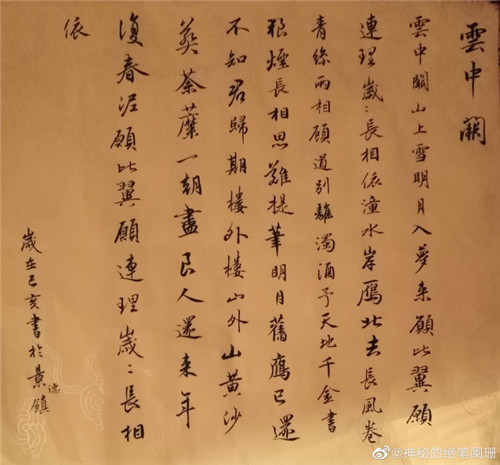 雲中闕
雲中闕山上雪明月入夢來願比翼願
連理歲〻長相依潼水岸鴈北去長風卷
青絲兩相顧道別離濁酒予天地千金書
狼煙長相思難提筆明月舊鷹已還
不知君歸期樓外樓山外山黃沙
葵荼蘼一朝盡良人還來年
復春泥願比翼願連理歲〻長相
依
歲在己亥書於景鎮
@神秘的绝笔阑珊